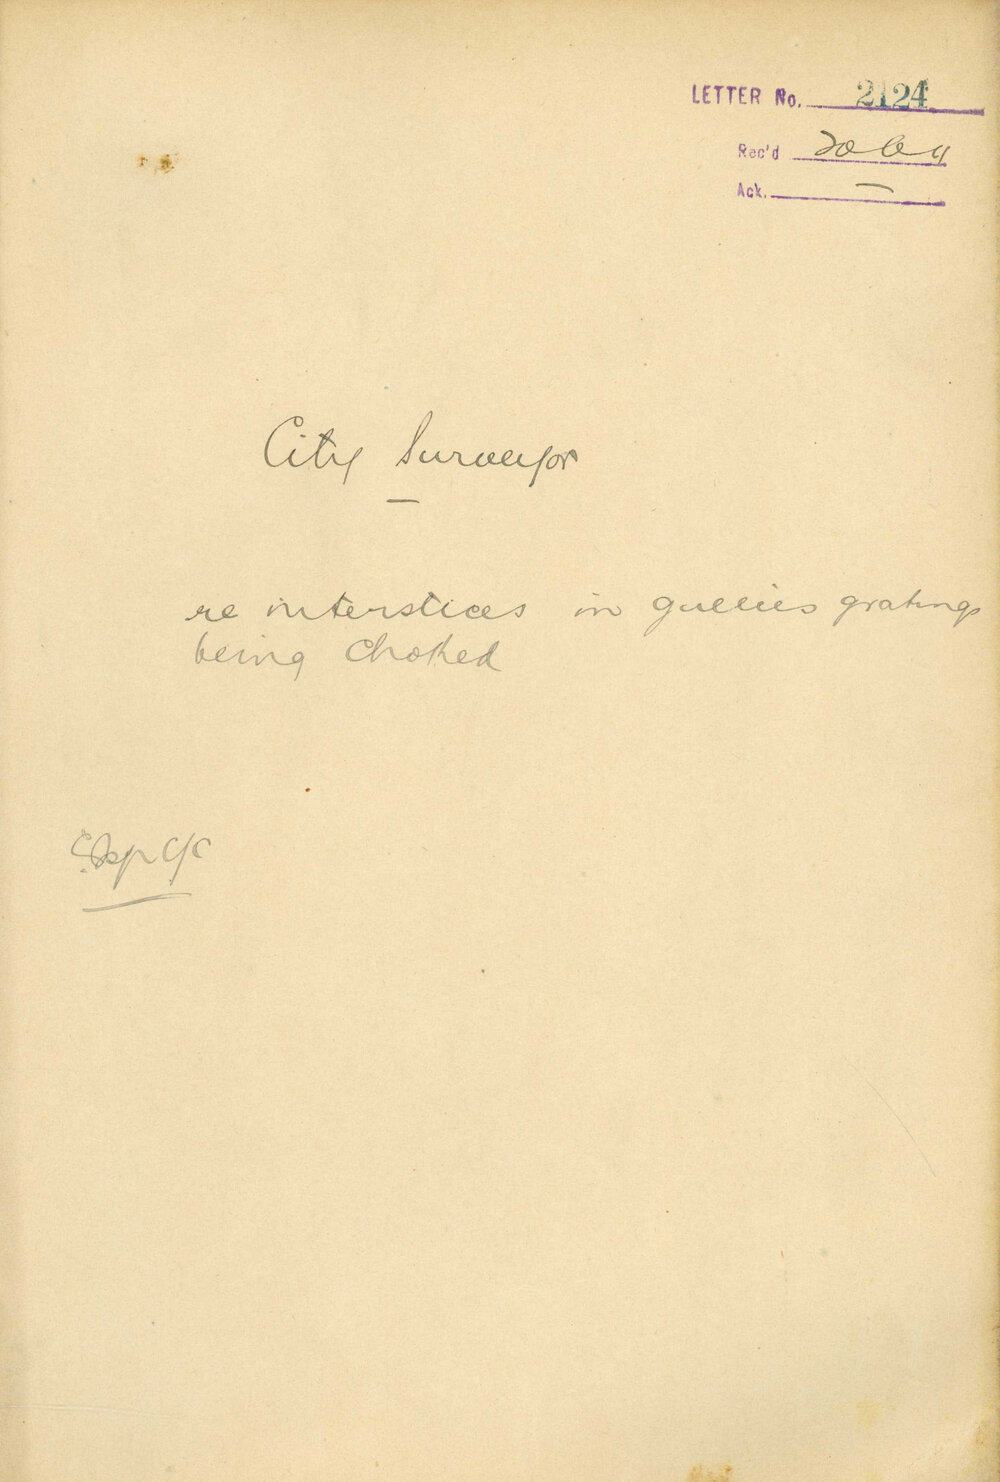 LETTER No. 2124
Rec'd
Ack. —
City Surveyor
re interstices in gullies gratings
being choked